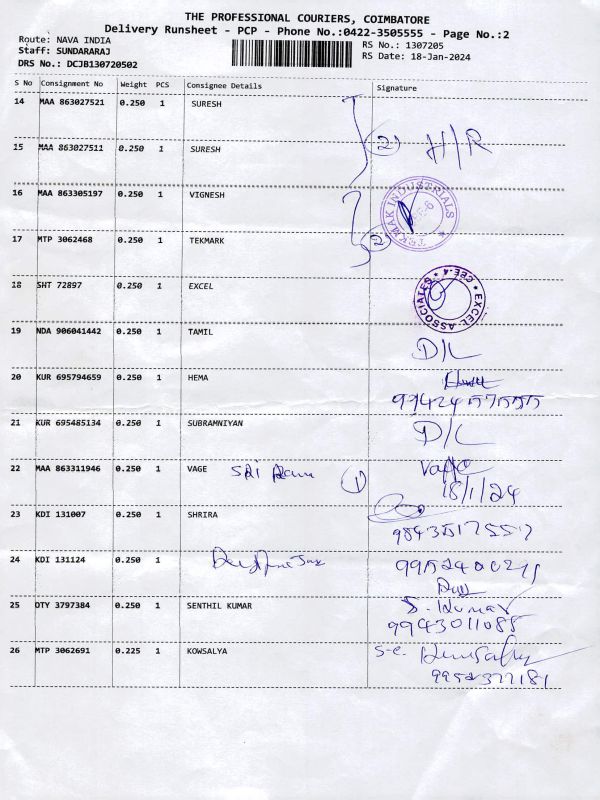 THE PROFESSIONAL COURIERS, COIMBATORE
Delivery Runsheet - PCP - Phone No.:0422-3505555 - Page No.:2
Route: NAVA INDIA
RS No.: 1307205
Staff: SUNDARARAJ
RS Date: 18-Jan-2024
DRS No.: DCJB130720502
S No Consignment No Weight PCS Consignee Details Signature
14 MAA 863027521 0.250 1 SURESH
15 MAA 863027511 0.250 1 SURESH (2) H/R
16 MAA 863305197 0.250 1 VIGNESH
TEKMAK INDUSTRIALS
17 MTP 3062468 0.250 1 TEKMARK (2)
18 SHT 72897 0.250 1 EXCEL
EXCEL ASSOCIATES * CBE-4 *
19 NDA 906041442 0.250 1 TAMIL D/L
20 KUR 695794659 0.250 1 HEMA
21 KUR 695485134 0.250 1 SUBRAMNIYAN D/L
22 MAA 863311946 0.250 1 VAGE SRI (1)
18/1/24
23 KDI 131007 0.250 1 SHRIRA
24 KDI 131124 0.250 1
25 OTY 3797384 0.250 1 SENTHIL KUMAR S. Kumar
9943011088
26 MTP 3062691 0.225 1 KOWSALYA